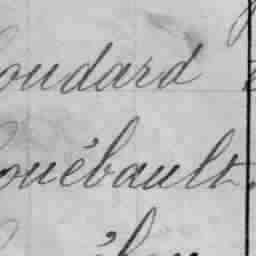 oudard
ouébault